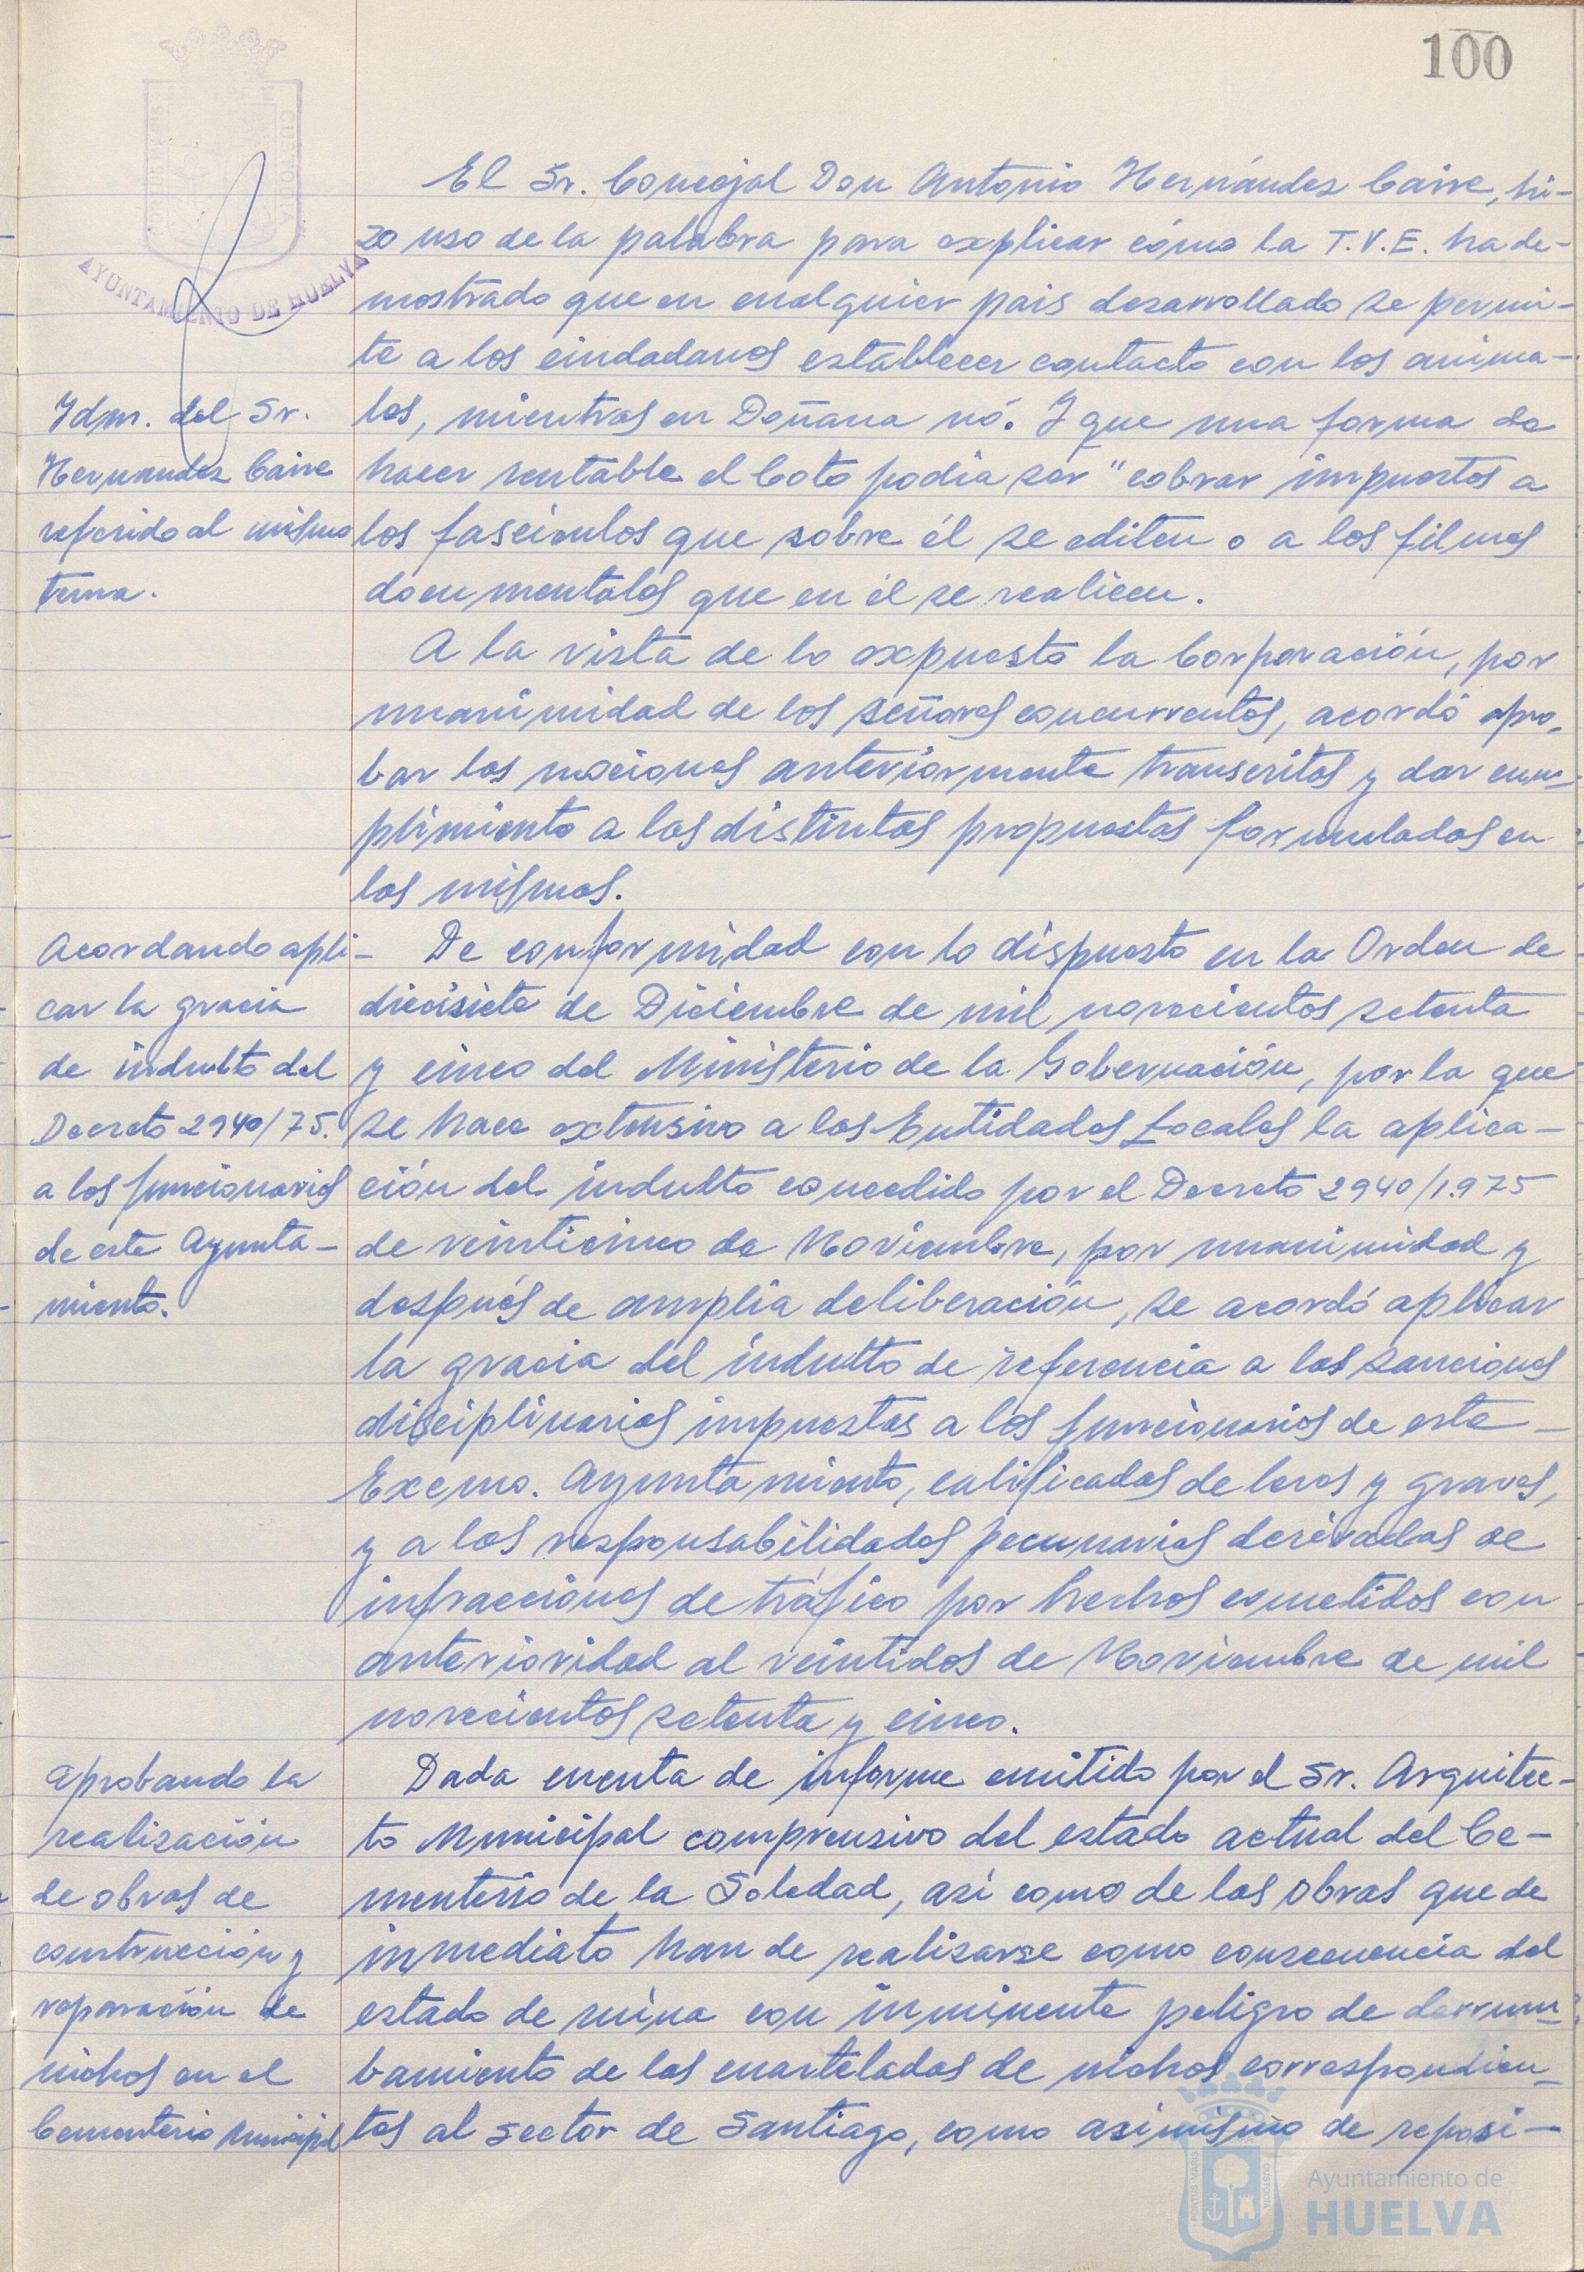 100
AYUNTAMIENTO DE HUELVA
El Sr. Concejal Don Antonio Hernández Caire, hi-
zo uso de la palabra para explicar cómo la T.V.E. ha de-
mostrado que en cualquier pais desarrollado se permi-
te a los ciudadanos establecer contacto con los anima-
les, mientras en Doñana nó. Y que una forma de
hacer rentable el Coto podia ser "cobrar impuestos a
los fascículos que sobre él se editen o a los filmes
documentales que en él se realicen.
Idm. del Sr.
Hernandez Caire
referido al mismo
tema.
A la vista de lo expuesto la Corporación, por
unanimidad de los señores concurrentes, acordó apro-
bar las mociones anteriormente transcritas y dar cum-
plimiento a las distintas propuestas formuladas en
las mismas.
Acordando apli-
car la gracia
de indulto del
Decreto 2940/75.
a los funcionarios
de este Ayunta-
miento.
De conformidad con lo dispuesto en la Orden de
diecisiete de Diciembre de mil novecientos setenta
y cinco del Ministerio de la Gobernación, por la que
se hace extensivo a las Entidades Locales la aplica-
ción del indulto concedido por el Decreto 2940/1.975
de veinticinco de Noviembre, por unanimidad y
después de amplia deliberación, se acordó aplicar
la gracia del indulto de referencia a las sanciones
disciplinarias impuestas a los funcionarios de este
Excmo. Ayuntamiento, calificadas de leves y graves,
y a las responsabilidades pecuniarias derivadas de
infracciones de tráfico por hechos cometidos con
anterioridad al veintidos de Noviembre de mil
novecientos setenta y cinco.
Aprobando la
realización
de obras de
construcción y
reparación de
nichos en el
Cementerio Municipal
Dada cuenta de informe emitido por el Sr. Arquitec-
to Municipal comprensivo del estado actual del Ce-
menterio de la Soledad, asi como de las obras que de
inmediato han de realizarse como consecuencia del
estado de ruina con inminente peligro de derrum-
bamiento de las cuarteladas de nichos correspondien-
tes al sector de Santiago, como asimismo de reposi-
PORTUS MARIS
CUSTODIA
Ayuntamiento de
HUELVA